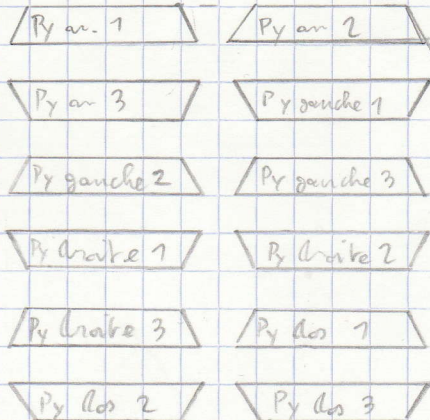 Py av. 1
Py av 2
Py av 3
Py gauche 1
Py gauche 2
Py gauche 3
Py droite 1
Py droite 2
Py droite 3
Py dos 1
Py dos 2
Py dos 3